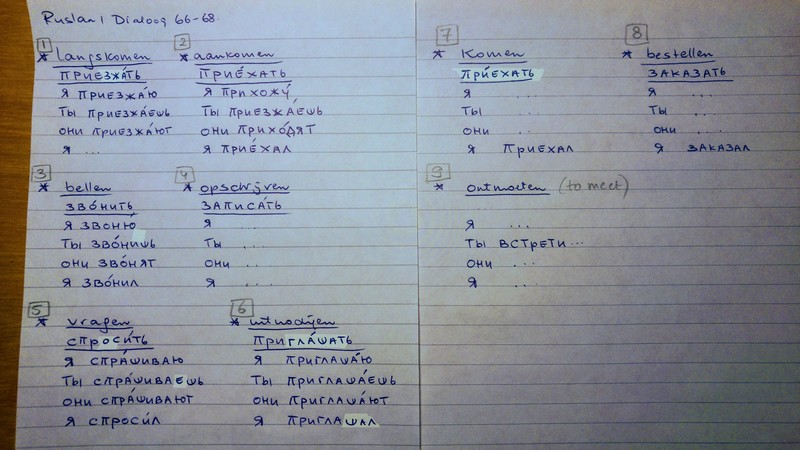 Ruslan 1 Dialoog 66-68
1
* langskomen
ПРИЕЗЖА́ТЬ
Я ПРИЕЗЖА́Ю
ТЫ ПРИЕЗЖА́ЕШЬ
ОНИ ПРИЕЗЖА́ЮТ
Я ...
2
* aankomen
ПРИЕ́ХАТЬ
Я ПРИХОЖУ́
ТЫ ПРИЕЗЖА́ЕШЬ
ОНИ ПРИХО́ДЯТ
Я ПРИЕ́ХАЛ
3
* bellen
ЗВО́НИТЬ
Я ЗВОНЮ́
ТЫ ЗВО́НИШЬ
ОНИ ЗВО́НЯТ
Я ЗВО́НИЛ
4
* opschrijven
ЗАПИСА́ТЬ
Я ...
ТЫ ...
ОНИ ...
Я ...
5
* vragen
СПРОСИ́ТЬ
Я СПРА́ШИВАЮ
ТЫ СПРА́ШИВАЕШЬ
ОНИ СПРА́ШИВАЮТ
Я СПРОСИ́Л
6
* uitnodigen
ПРИГЛА́ШАТЬ
Я ПРИГЛАША́Ю
ТЫ ПРИГЛАША́ЕШЬ
ОНИ ПРИГЛАША́ЮТ
Я ПРИГЛАШАЛ
7
* Komen
ПРИ́ЕХАТЬ
Я ...
ТЫ ...
ОНИ ...
Я ПРИЕХАЛ
8
* bestellen
ЗАКАЗАТЬ
Я ...
ТЫ ...
ОНИ ...
Я ЗАКАЗАЛ
9
* ontmoeten (to meet)
Я ...
ТЫ ВСТРЕТИ...
ОНИ ...
Я ...